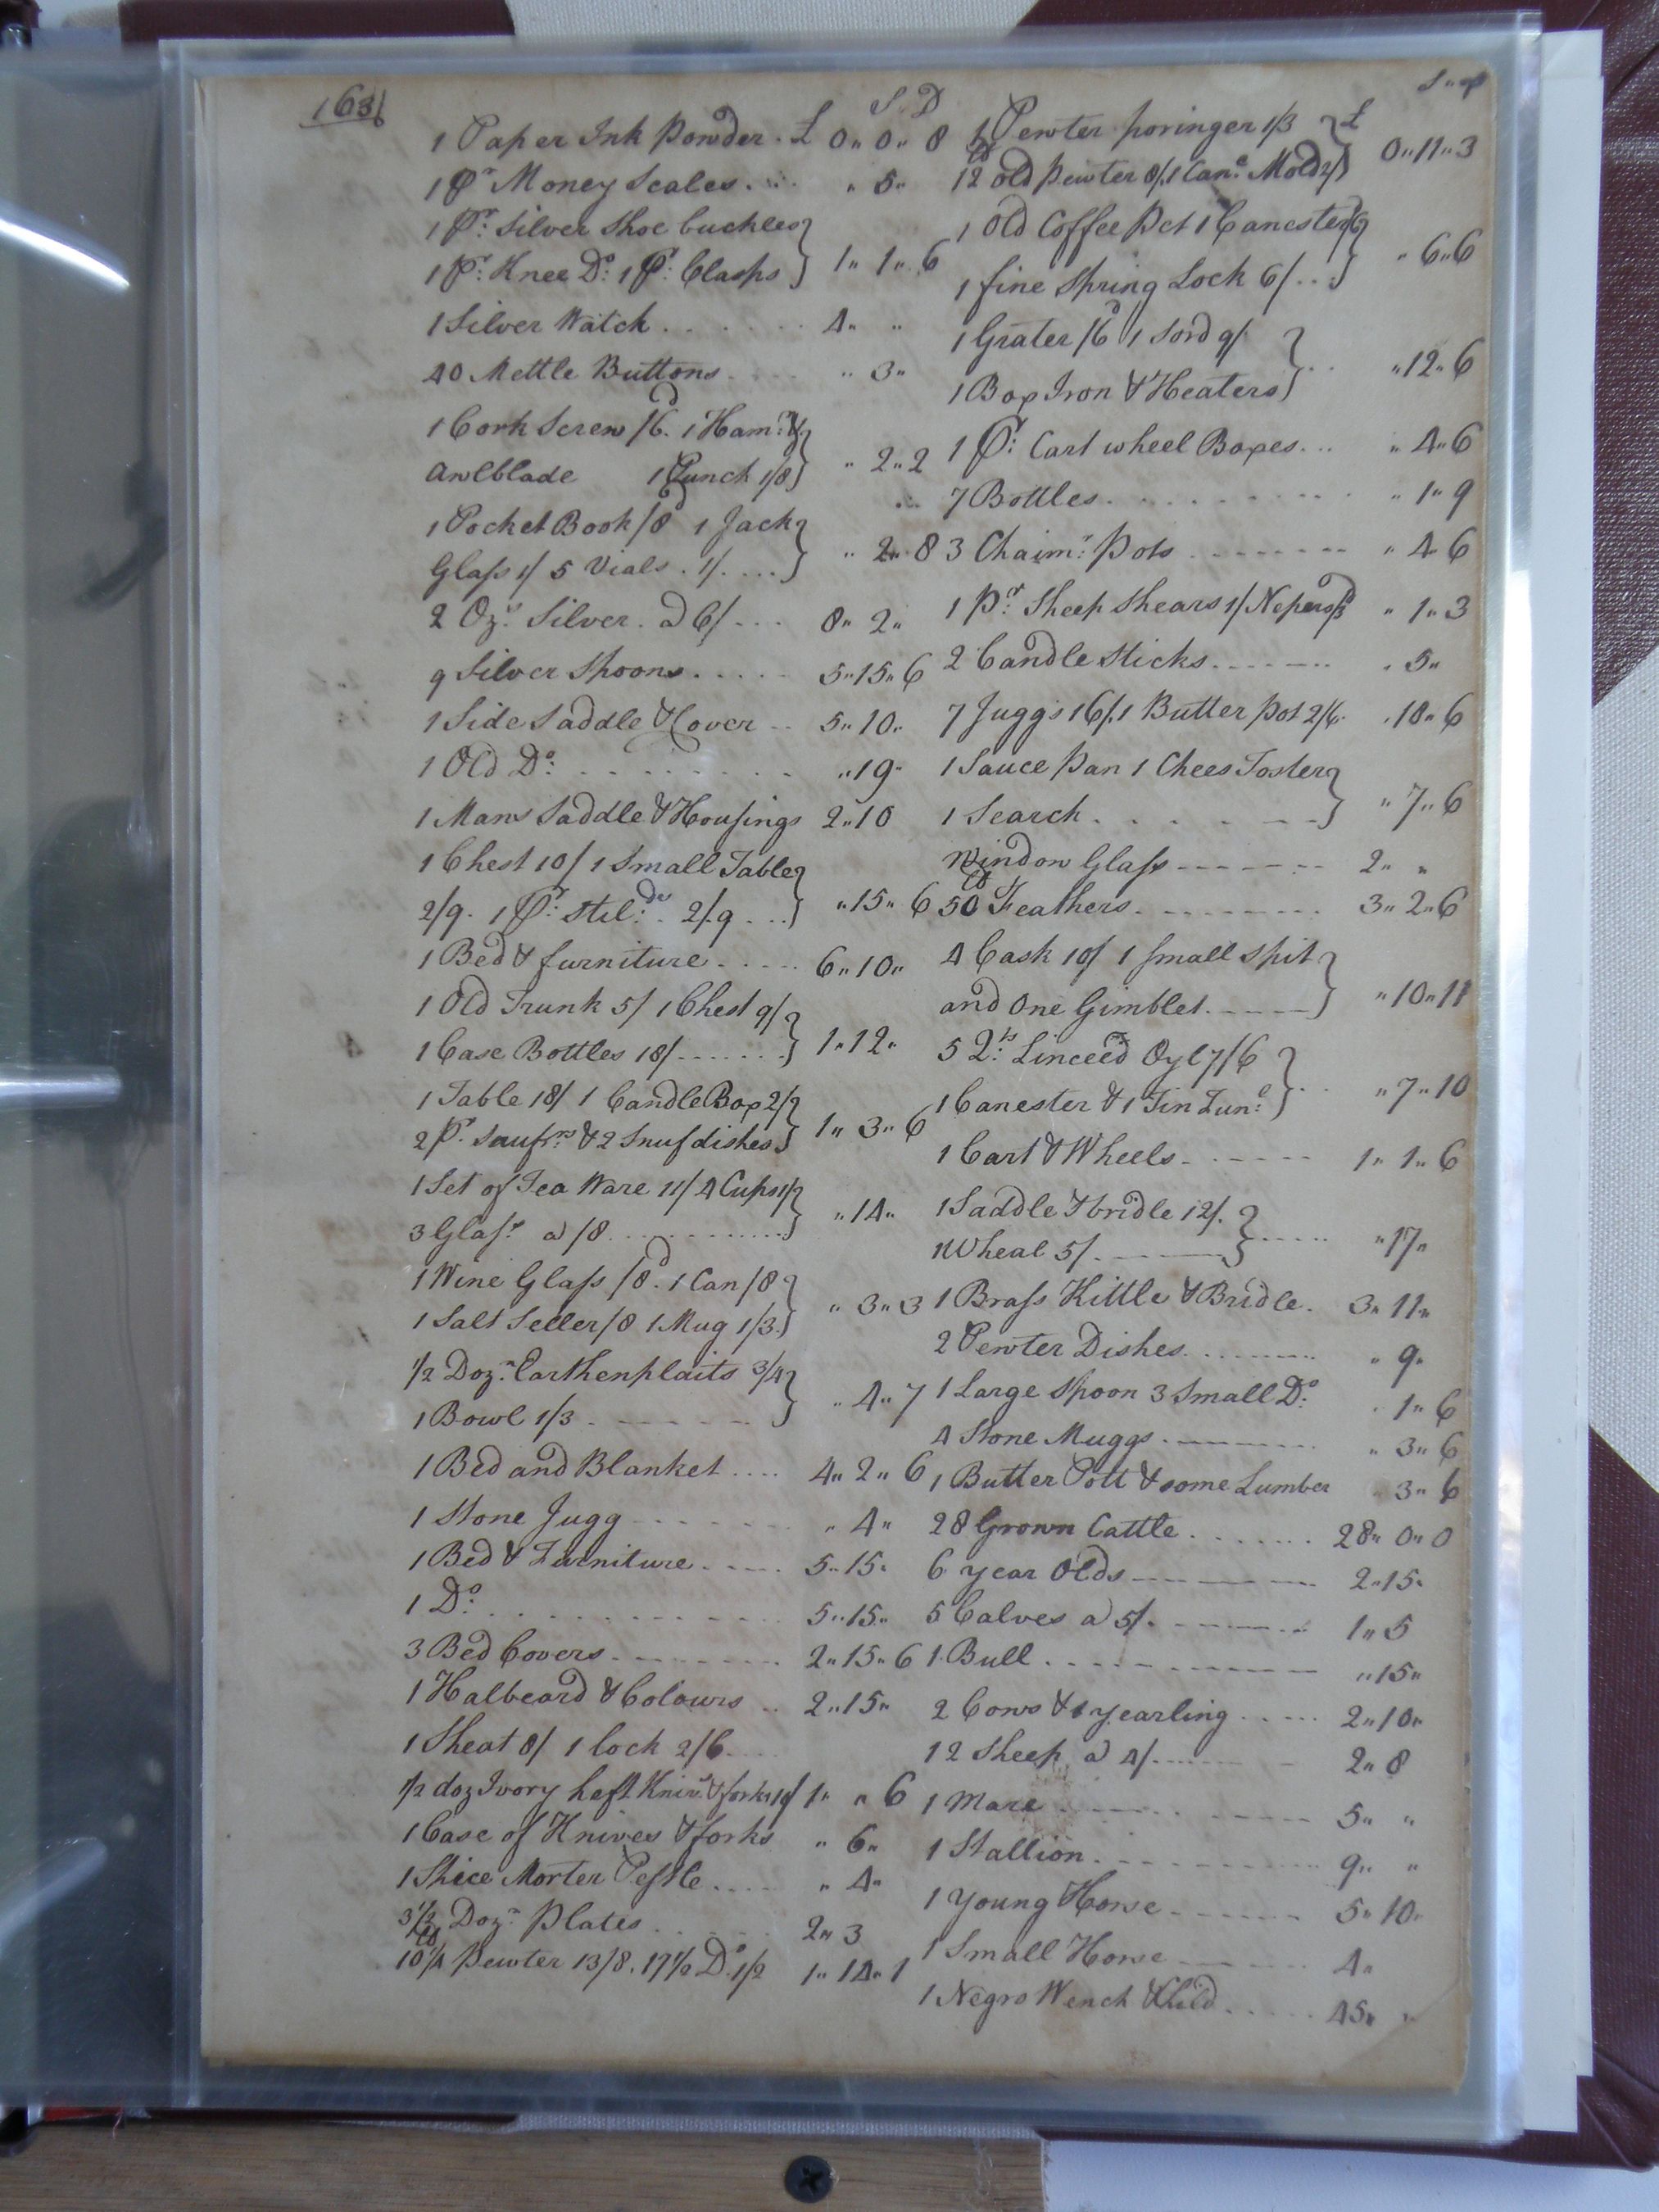 163
S D
1 Paper Ink Powder . £ 0 " 0 " 8
1 Pr Money Scales . . . " 5 "
1 Pr: Silver Shoe buckles
1 Pr: Knee Do: 1 Pr: Clasps } 1 " 1 " 6
1 Silver Watch . . . . . . . 4 " "
40 Mettle Buttons . . . . " 3 "
1 Cork Screw /6d. 1 Ham:r &
awlblade 1 Punch 1/8 } " 2 " 2
1 Pocket Book /8d 1 Jack
Glass 1/ 5 Vials . 1/. . . . } " 2 " 8
2 Ozs. Silver . a 6/ . . . 8 " 2 "
9 Silver Spoons . . . . . 5 " 15 " 6
1 Side Saddle & Cover . . 5 " 10 "
1 Old Do: . . . . . . . . " 19 "
1 Mans Saddle & Housings 2 " 10
1 Chest 10/ 1 Small Table
2/9. 1 Pr: Stil:ds. 2/.9 . . . } " 15 " 6
1 Bed & furniture . . . . . 6 " 10 "
1 Old Trunk 5/ 1 Chest 9/
1 Case Bottles 18/ . . . . . . . } 1 " 12 "
1 Table 18/ 1 Candle Box 2/
2 Pr. Snufrs: & 2 Snufdishes } 1 " 3 " 6
1 Set of Tea Ware 11/ 4 Cups 1/
3 Glass a /8 . . . . . . . . . . . . } " 14 "
1 Wine Glass /8d. 1 Can /8
1 Salt Seller /8 1 Mug 1/3. } " 3 " 3
1/2 Dozn. Earthenplaits 3/4
1 Bowl 1/3 . - - - - - } " 4 " 7
1 Bed and Blanket . . . . 4 " 2 " 6
1 Stone Jugg - - - - - - - " 4 "
1 Bed & Furniture . - - - . 5 " 15 "
1 Do: . . . . . . . . . . . 5 " 15 "
3 Bed Covers . - - - - - - . 2 " 15 " 6
1 Halbeard & Colours . . 2 " 15 "
1 Sheat 8/ 1 lock 2/6 . . . .
1/2 doz Ivory haft Knivs & forks 10/ 1 " " 6
1 Case of Knives & forks " 6 "
1 Spice Morter Pestle . . . . " 4 "
3 1/2 Dozn. Plates . . . . . . 2 " 3
10 1/4 lb Pewter 13/8. 17 1/2 Do. 1/2 1 " 14 " 1
S " D
1 Pewter poringer 1/3
12 lb old Pewter 8/. 1 Cane: Mold 2/ } £ 0 " 11 " 3
1 Old Coffee Pot 1 Canester /6
1 fine Spring Lock 6/ . . } " 6 " 6
1 Grater /6d 1 Sord 9/.
1 Box Iron & Heaters } . . " 12 " 6
1 Pr: Cart wheel Boxes . . . " 4 " 6
7 Bottles . . . . . . . . . . . " 1 " 9
3 Chaimr: Pots . - - - - - - - " 4 " 6
1 Pr: Sheep Shears 1/ Nepers /3d " 1 " 3
2 Candle Sticks . - - - - . . " 5 "
7 Juggs 16/. 1 Butter Pot 2/6. " 18 " 6
1 Sauce Pan 1 Chees Toster
1 Search . . . . . - - } " 7 " 6
Window Glass - - - - - - - 2 " "
50 lb Feathers . - - - - - . . . 3 " 2 " 6
4 Cask 10/ 1 Small Spit
and One Gimblet . - - - - } " 10 " 11
5 Qts: Linceed Oyl 7/6
1 Canester & 1 Tin Tune: } . . " 7 " 10
1 Cart & Wheels . - - - - - 1 " 1 " 6
1 Saddle & bridle 12/.
1 Wheal 5/. - - - - - } . . . . . . " 17 "
1 Brass Kittle & Bridle . 3 " 11 "
2 Pewter Dishes . . . . . . . . . " 9 "
1 Large Spoon 3 Small Do: " 1 " 6
4 Stone Muggs . - - - - . . . . " 3 " 6
1 Butter Pott & some Lumber " 3 " 6
28 Grown Cattle . . . . . . . 28 " 0 " 0
6 year Olds - - - - - - - 2 " 15 "
5 Calves a 5/. . - - - - - 1 " 5
1 Bull . . . . - - - - - - - " 15 "
2 Cows & 1 yearling . . - - - 2 " 10 "
12 Sheep a 4/. - - - - - 2 " 8
1 Mare . - - - . . - - - - 5 " "
1 Stallion . - - - - - - . . . . 9 " "
1 Young Horse . - - - - - - 5 " 10 "
1 Small Horse - - - - - - 4 "
1 Negro Wench & Child . . . . . 45 " "